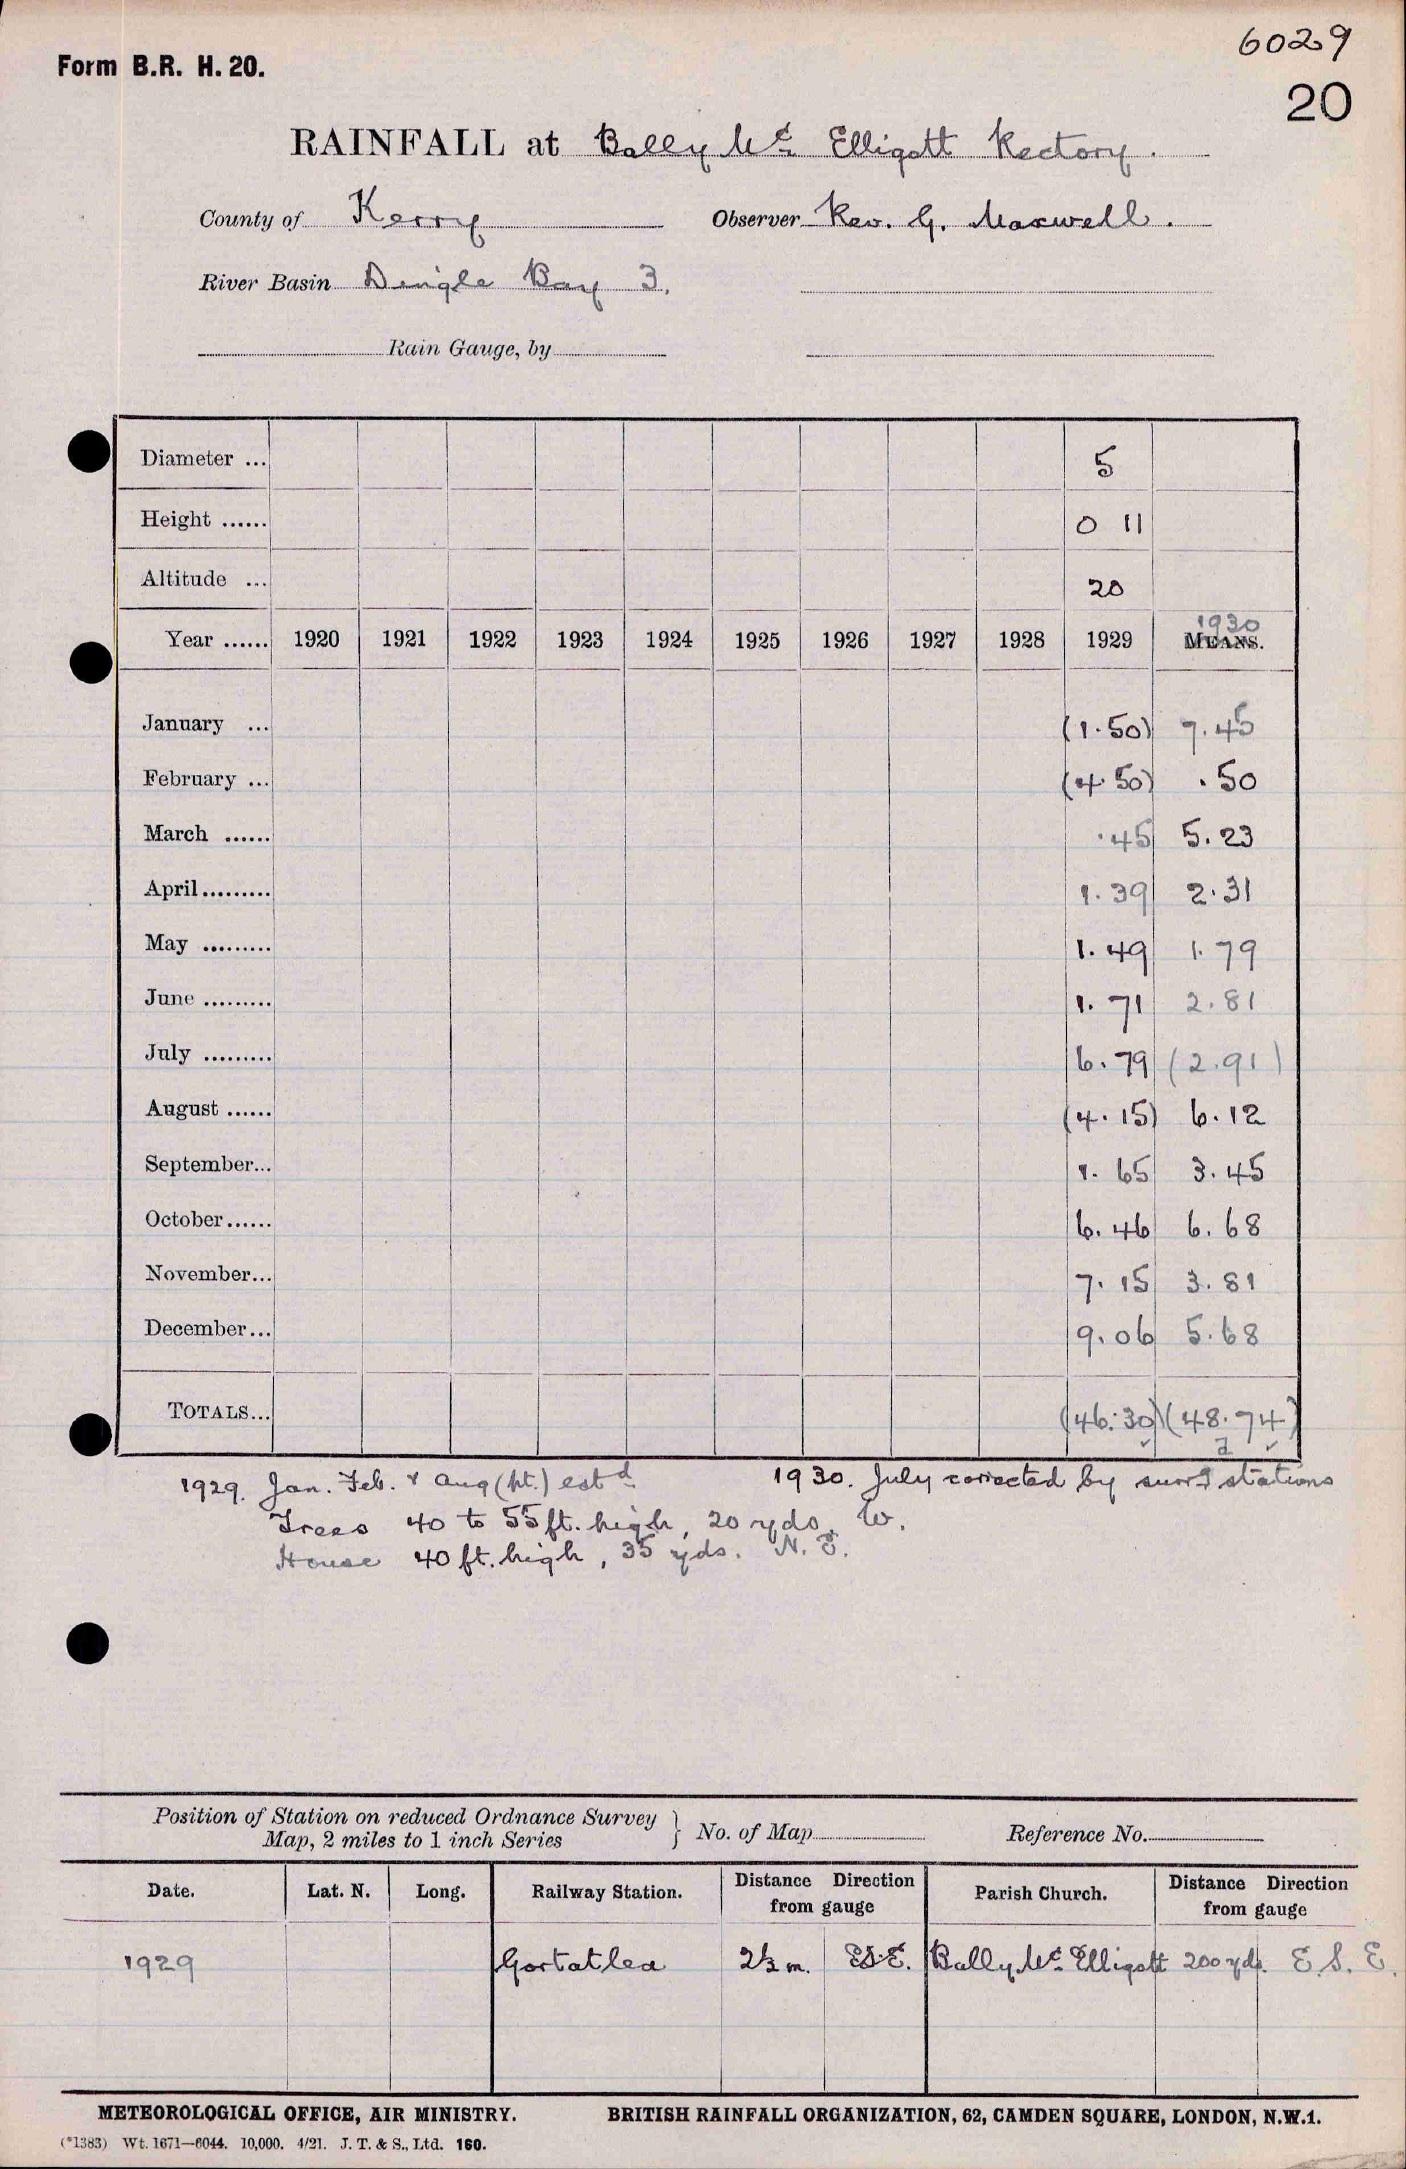 6029
Form B.R. H. 20.
20
RAINFALL at Bally Mc Elligott Rectory.
County of Kerry Observer Rev. G. Maxwell.
River Basin Dingle Bay 3.
Rain Gauge, by
Diameter ... 5
Height ...... 0 11
Altitude ... 20
1930
Year ...... 1920 1921 1922 1923 1924 1925 1926 1927 1928 1929 MEANS.
January ... (1.50) 7.45
February ... (4.50) .50
March ...... .45 5.23
April ......... 1.39 2.31
May ......... 1.49 1.79
June ......... 1.71 2.81
July ......... 6.79 (2.91)
August ...... (4.15) 6.12
September... 1.65 3.45
October...... 6.46 6.68
November... 7.15 3.81
December... 9.06 5.68
TOTALS... (46.30) (48.74)
1929. Jan. Feb. & Aug (pt.) estd 1930. July corrected by surrd stations
Trees 40 to 55 ft. high, 20 yds. W.
House 40 ft. high, 35 yds. N.E.
Position of Station on reduced Ordnance Survey
Map, 2 miles to 1 inch Series } No. of Map Reference No.
Date. Lat. N. Long. Railway Station. Distance from gauge Direction Parish Church. Distance from gauge Direction
1929 Gortatlea 2½ m. ESE. Bally Mc Elligott 200 yds. E.S.E.
METEOROLOGICAL OFFICE, AIR MINISTRY. BRITISH RAINFALL ORGANIZATION, 62, CAMDEN SQUARE, LONDON, N.W.1.
(*1383) Wt. 1671—6044. 10,000. 4/21. J. T. & S., Ltd. 160.